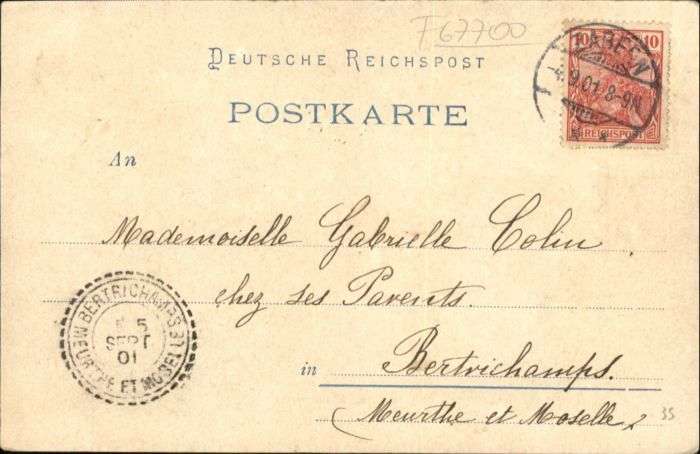 F 67700
DEUTSCHE REICHSPOST
POSTKARTE
An
10 10
REICHSPOST
9.01. 8-9N.
Mademoiselle Gabrielle Colin
chez ses Parents.
in Bertrichamps.
Meurthe et Moselle
BERTRICHAMPS
5
SEPT
01
MEURTHE ET MOSELLE
35